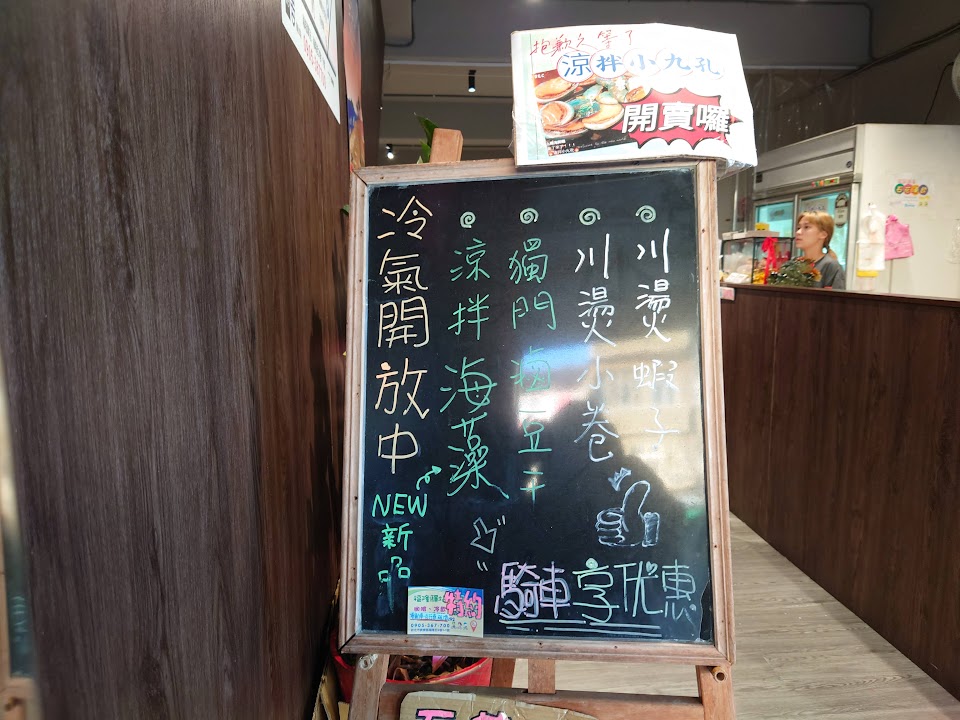 抱歉久等了
涼拌小九孔
開賣囉
川燙蝦子
川燙小卷
獨門滷豆干
涼拌海藻
冷氣開放中
NEW
新品
騎車享优惠
特約